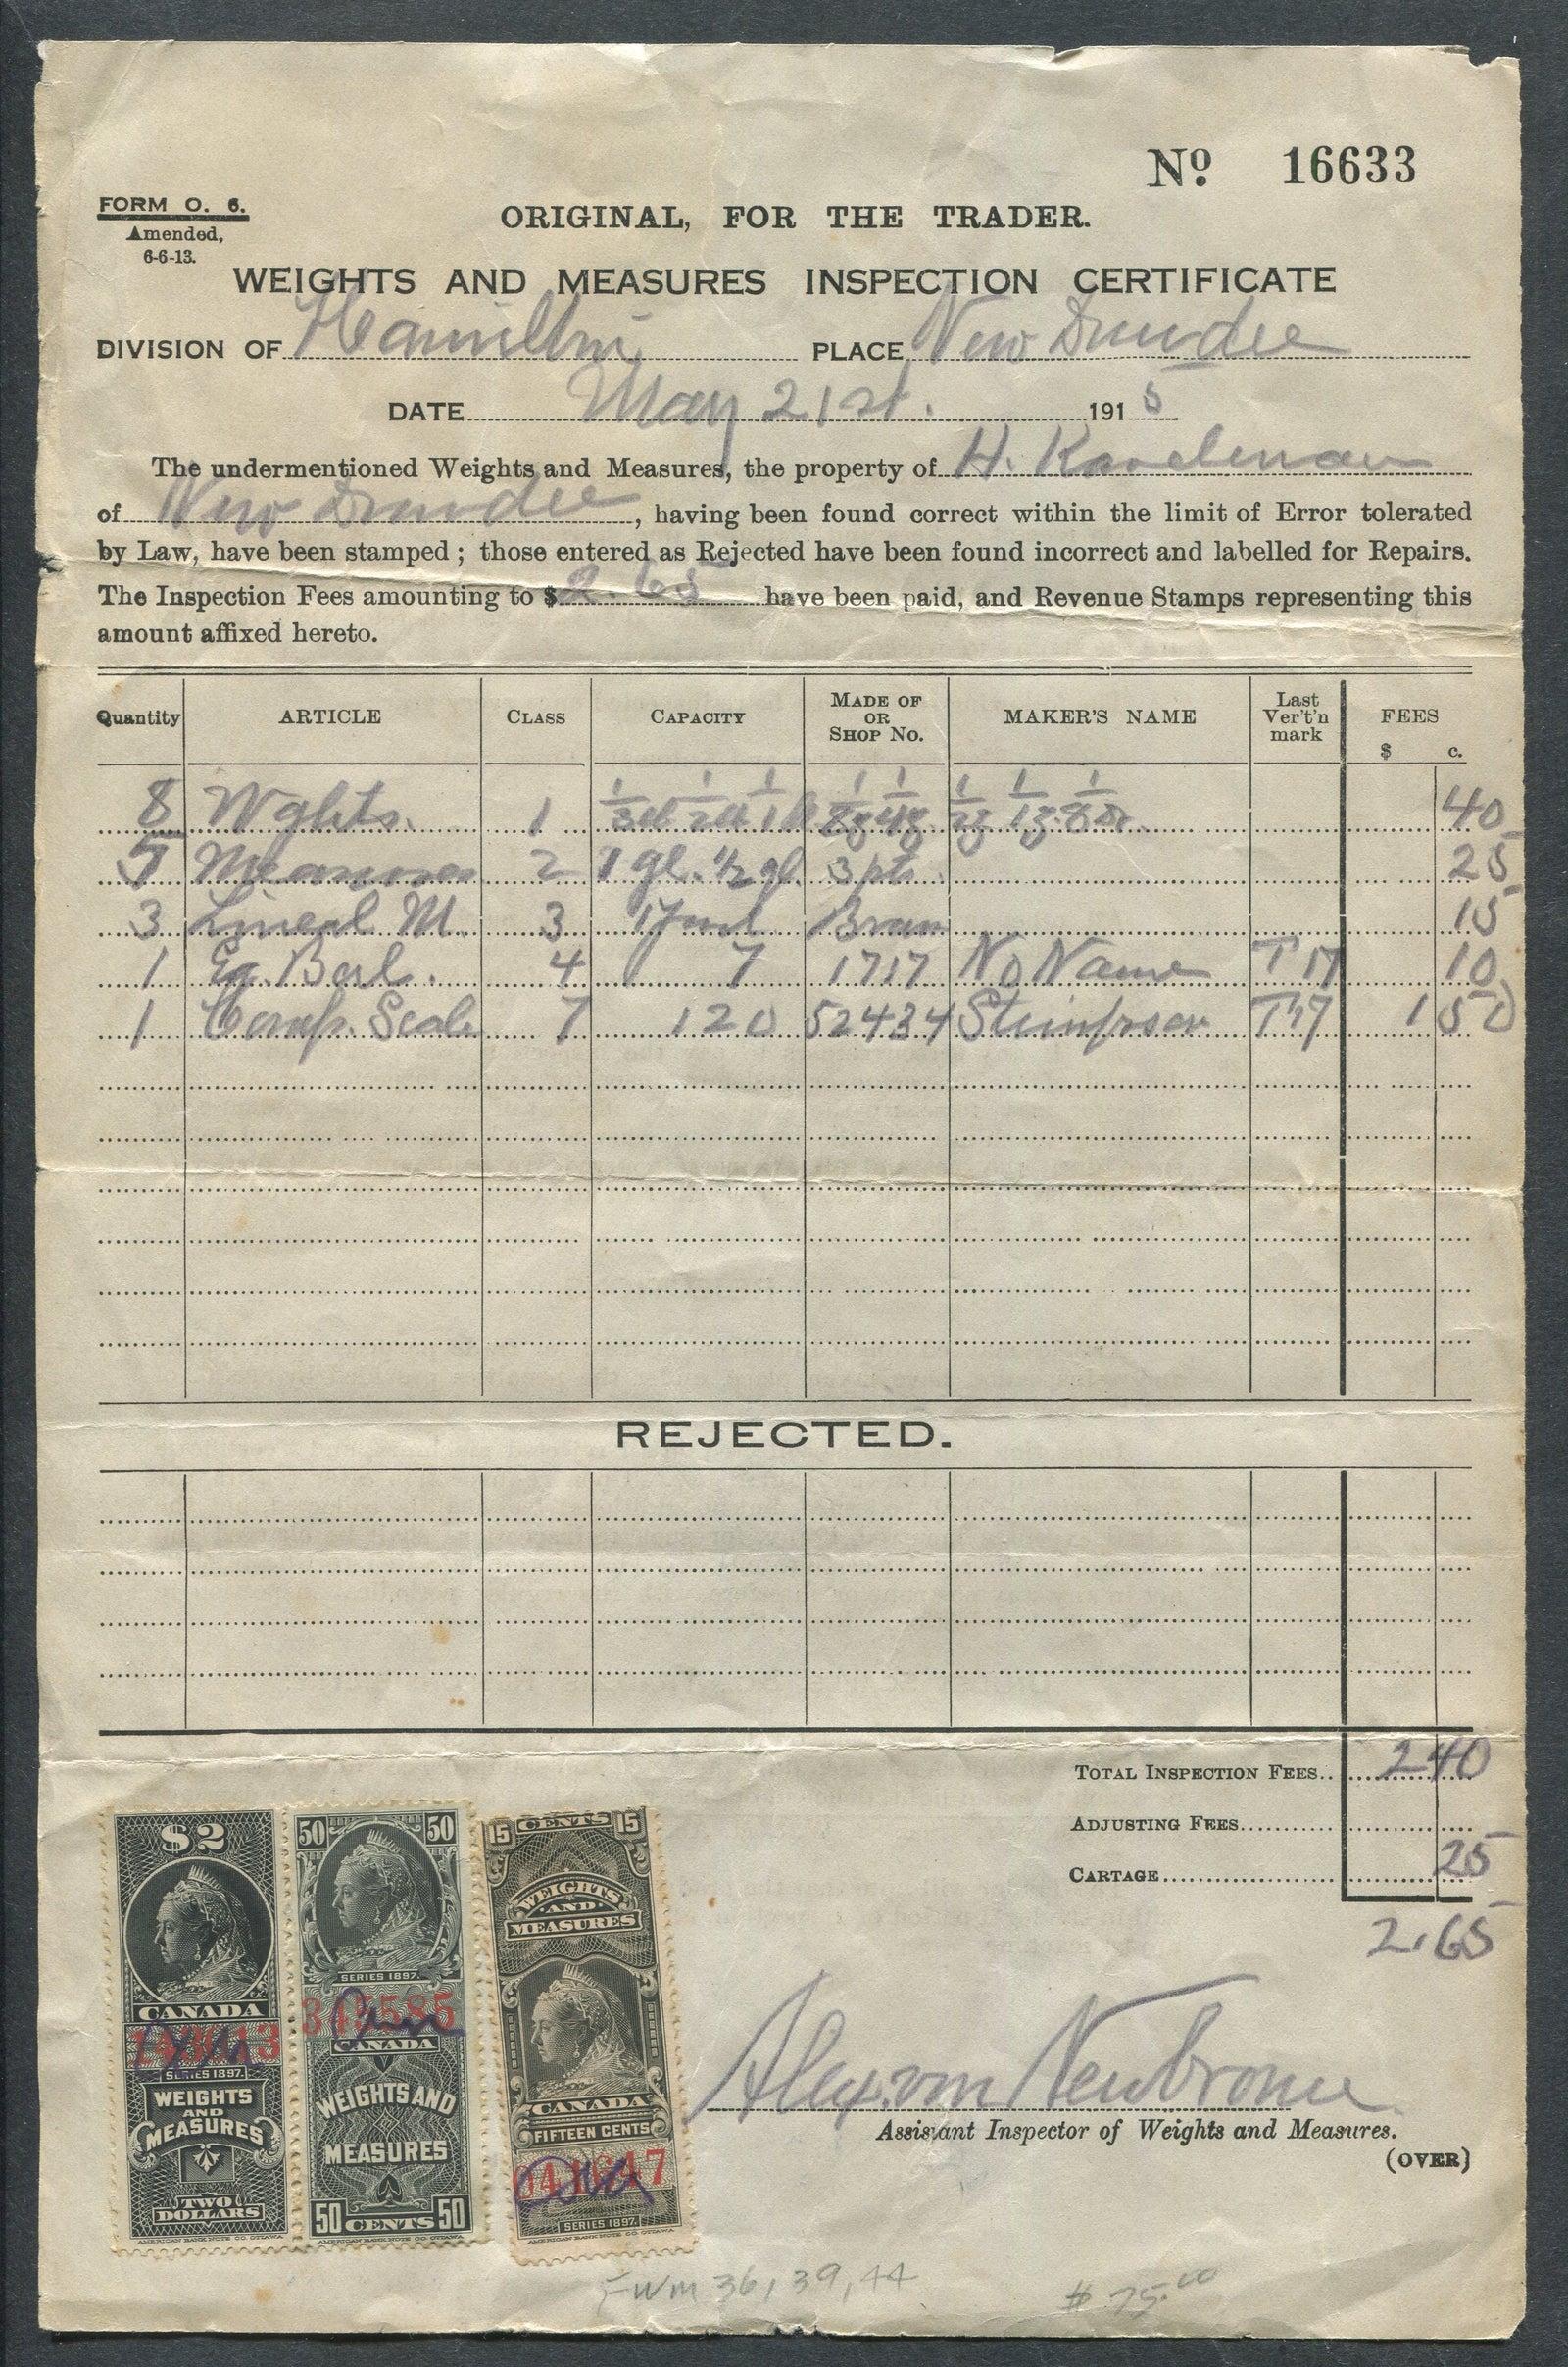 Nº 16633
FORM O. 6.
Amended,
6-6-13.
ORIGINAL, FOR THE TRADER.
WEIGHTS AND MEASURES INSPECTION CERTIFICATE
DIVISION OF Hamilton PLACE New Dundee
DATE May 21st. 1915
The undermentioned Weights and Measures, the property of H.
of New Dundee, having been found correct within the limit of Error tolerated
by Law, have been stamped; those entered as Rejected have been found incorrect and labelled for Repairs.
The Inspection Fees amounting to $2.65 have been paid, and Revenue Stamps representing this
amount affixed hereto.
Quantity ARTICLE CLASS CAPACITY MADE OF OR SHOP No. MAKER'S NAME Last Ver't'n mark FEES $ c.
8 Wghts. 1 40
5 Measures 2 1 gl. 1/2 gl. 3 pts. 25
3 Lineal M. 3 1 Yard 15
1 Eq. Bal. 4 7 1717 No Name T 17 10
1 Comp. Scale 7 120 52434 Stimpson 1 50
REJECTED.
TOTAL INSPECTION FEES.. 2 40
ADJUSTING FEES
CARTAGE 25
2.65
$2
CANADA
SERIES 1897.
WEIGHTS
AND
MEASURES
TWO
DOLLARS
AMERICAN BANK NOTE CO. OTTAWA
50 50
SERIES 1897.
345585
CANADA
WEIGHTS AND
MEASURES
50 CENTS 50
AMERICAN BANK NOTE CO. OTTAWA
15 CENTS 15
WEIGHTS
AND
MEASURES
CANADA
FIFTEEN CENTS
SERIES 1897.
AMERICAN BANK NOTE CO. OTTAWA
Alex. von Neubronn
Assistant Inspector of Weights and Measures.
(OVER)
FWM 36, 39, 44
$ 75.00